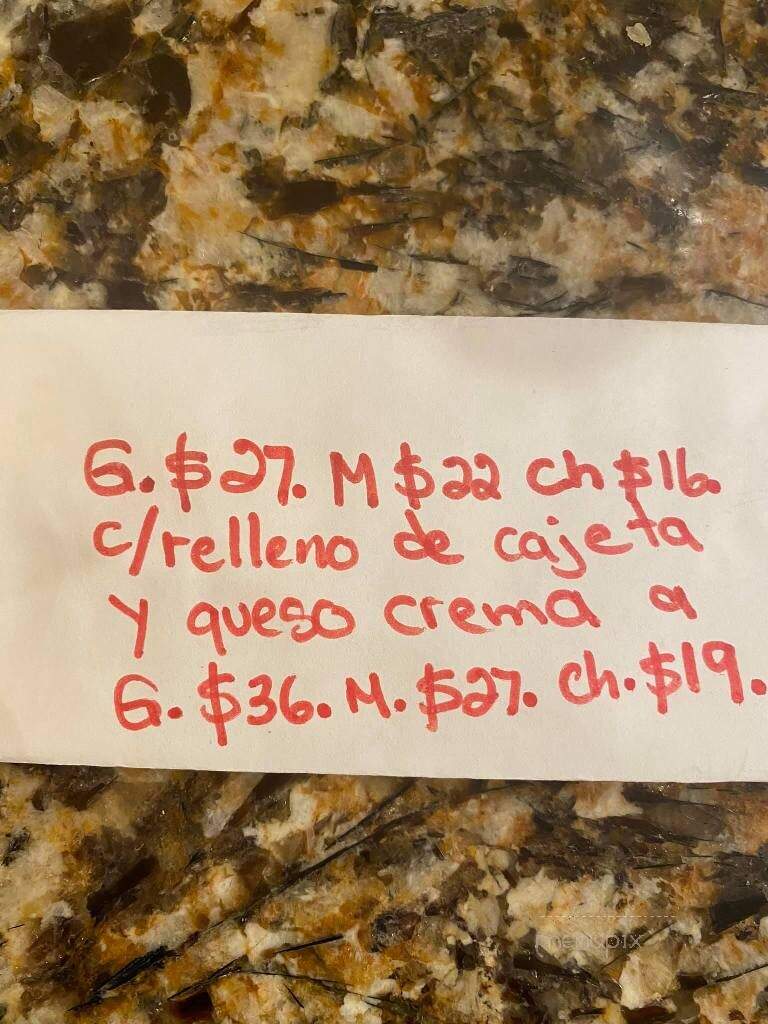 G. $27. M $22 ch $16.
c/relleno de cajeta
y queso crema a
G. $36. M. $27. Ch. $19.
menupix